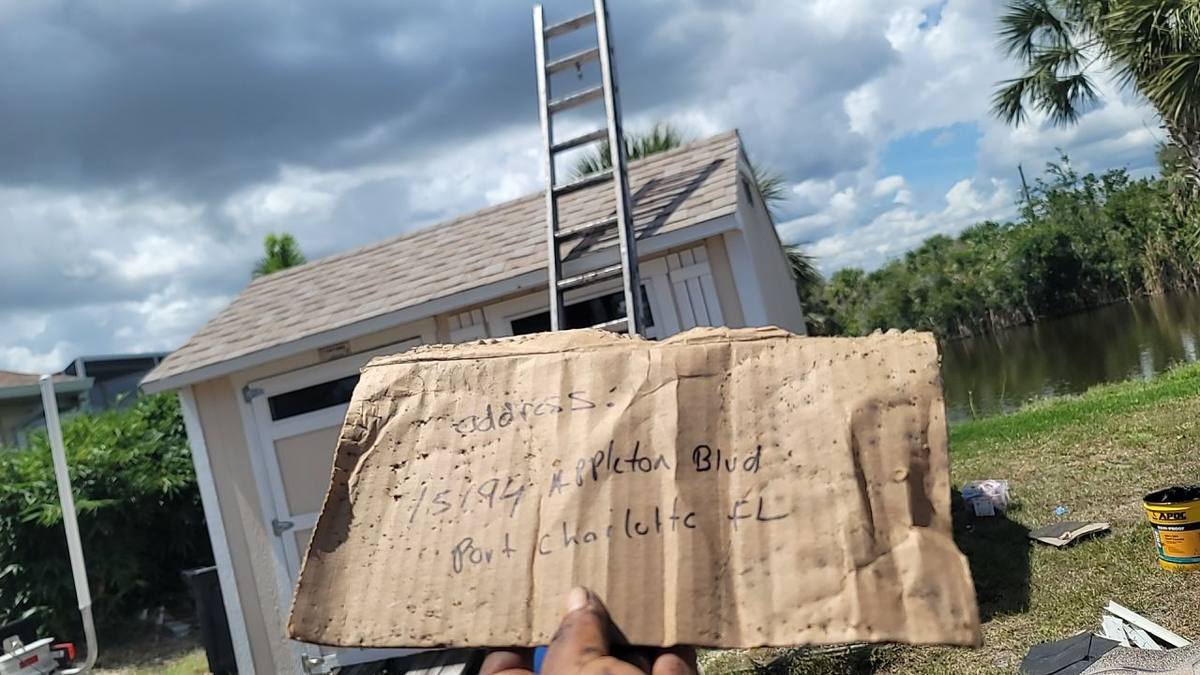 address:
15194 Appleton Blvd
Port Charlotte FL
APOC